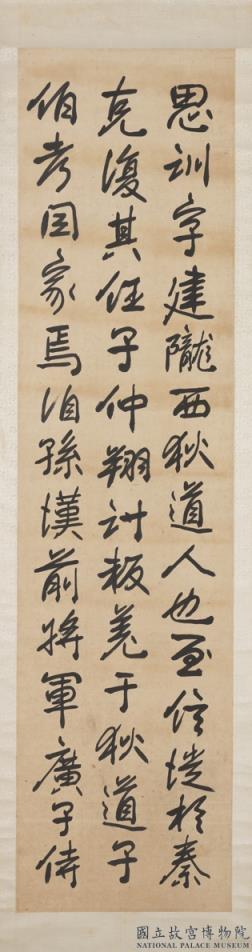 思訓字建隴西狄道人也至信遷於秦
克復其任子仲翔討叛羌于狄道子
伯考因家焉洎孫漢前將軍廣子侍
國立故宮博物院
NATIONAL PALACE MUSEUM